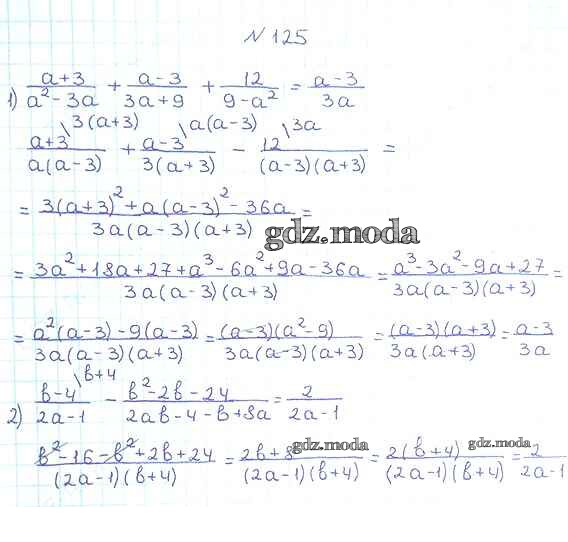 N 125
1) (a+3)/(a²-3a) + (a-3)/(3a+9) + 12/(9-a²) = (a-3)/(3a)
(a+3)/(a(a-3)) \3(a+3) + (a-3)/(3(a+3)) \a(a-3) - 12/((a-3)(a+3)) \3a =
= (3(a+3)²+a(a-3)²-36a)/(3a(a-3)(a+3)) =
gdz.moda
= (3a²+18a+27+a³-6a²+9a-36a)/(3a(a-3)(a+3)) = (a³-3a²-9a+27)/(3a(a-3)(a+3)) =
= (a²(a-3)-9(a-3))/(3a(a-3)(a+3)) = ((a-3)(a²-9))/(3a(a-3)(a+3)) = ((a-3)(a+3))/(3a(a+3)) = (a-3)/(3a)
2) (b-4)/(2a-1) \b+4 - (b²-2b-24)/(2ab-4-b+8a) = 2/(2a-1)
gdz.moda gdz.moda
(b²-16-b²+2b+24)/((2a-1)(b+4)) = (2b+8)/((2a-1)(b+4)) = (2(b+4))/((2a-1)(b+4)) = 2/(2a-1)